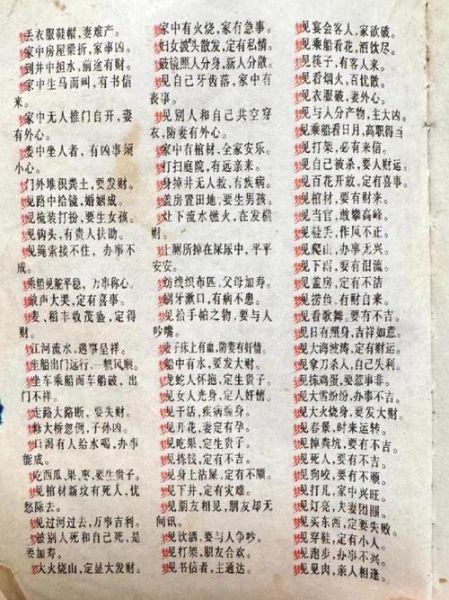 梦丢衣服鞋帽，妻难产。
梦家中房屋梁折，家事凶。
梦到井中担水，前途有财。
梦家中生马而叫，有书信
来。
梦家中无人推门自开，妻
有外心。
梦娄中坐人者，有凶事须
小心。
梦门外堆积粪土，要发财。
梦见路中拾镜，婚姻成。
梦见梳装打扮，要生女孩。
梦见锅头，有贵人扶助。
梦见绳索接不住，办事不
成。
梦乘船见舵平稳，万事称心。
梦放声大哭，定有喜事。
梦麦、稻丰收茂盛，定得
财。
梦江河流水，遇事呈祥。
梦坐船出门远行，一帆风顺。
梦坐车乘船而车船破，出
门不祥。
梦走路大路断，要失财。
梦修大桥忽倒，子孙凶。
梦口渴有人给水喝，办事
能成。
梦吃西瓜、果、枣，要生贵子。
梦见棺材新坟有死人，忧
愁除去。
梦见过河过去，万事吉利。
梦被别人死和自己死，是
要加寿。
梦大火烧山，定显大发财。
梦家中有火烧，家有急事。
梦妇女披头散发，定有私情。
梦破镜照人分身，新人分散。
梦见自己牙齿落，家中有
丧事。
梦见别人和自己共空穿
衣，防妻有外心。
梦家中有棺材，全家安乐。
梦打扫庭院，有远亲来。
梦身掉井无人救，有疾病。
梦盖房置田地，要生男孩。
梦灶下流水燃火，在发横
财。
梦上厕所掉在屎尿中，平平
安安。
梦纺线织布匹，父母加寿。
梦刷牙漱口，有病不患。
梦见给手帕之物，要与人
吵嘴。
梦妻子床上有血，防妻有奸情。
梦船中有水，要发大财。
梦龙蛇人怀抱，定生贵子。
梦见女人光身，定人奸情。
梦见干活，疾病缠身。
梦见开花，妻定有孕。
梦见吃果，定生贵子。
梦见拣钱，定有不利。
梦见身上沾屎，定有不顺。
梦见下井，定有灾难。
梦见朋友相见，朋友却无
间讯。
梦见饮酒，要与人争吵。
梦见打架，朋友合欢。
梦见书信者，主通达。
梦见宴会客人，家欲破。
梦见乘船看花，酒饮尽。
梦见筷子，有客人来。
梦见看烟火，百忧散。
梦见衣服破，妻外心。
梦见与人分产物，主大凶。
梦见乘船看日月，高职得当
梦见打架，必有来信。
梦见自己被杀，要人财运。
梦见百花开放，定有喜事。
梦见棺材，要有财来。
梦见当官，敢攀高峰。
梦见丢，作风不正。
梦见爬山，办事无兴。
梦见下雨，要有泪流。
梦见盖房，定有不洁
梦见捞鱼，有财自来。
梦见看歌舞。要有不吉。
梦见日有照身，吉祥如意。
梦见大海波涛，定有财运。
梦见拿刀杀人，自己失利。
梦见拣鸡蛋，要惹事非。
梦见大雪纷纷，办事不吉。
梦见大火烧身，要发大财。
梦见春景，时来运转。
梦见掉粪坑，要有不吉。
梦见死人，要有不吉。
梦见狗咬，要有不顺。
梦见打儿，家中兴旺。
梦见灯亮，夫妻团圆。
梦见买东西，定要失败。
梦见穿鞋，定有小人。
梦见跑步，办事不兴。
梦见见肉，亲人相逢。